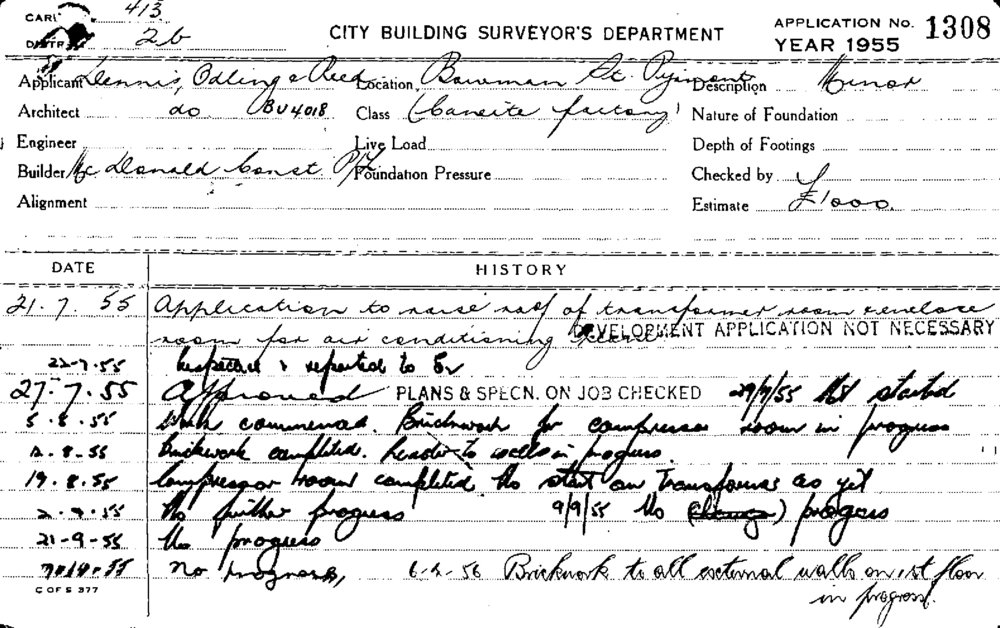 CARD 413
DISTRICT 2b
CITY BUILDING SURVEYOR'S DEPARTMENT
APPLICATION No. 1308
YEAR 1955
Applicant Dennis, Odling & Reed Location Bowman St. Pyrmont Description Minor
Architect do BU4018 Class (Caneite factory) Nature of Foundation
Engineer Live Load Depth of Footings
Builder Mc Donald Const. P/L Foundation Pressure Checked by
Alignment Estimate £1000.
DATE HISTORY
21.7.55 Application to raise roof of transformer room & enclose
room for air conditioning DEVELOPMENT APPLICATION NOT NECESSARY
22-7.55 Inspected & reported to
27.7.55 Approved PLANS & SPECN. ON JOB CHECKED 29/7/55 Not started
5.8.55 Work commenced. Brickwork for compressor room in progress
8-55 Brickwork completed. to walls in progress.
19.8.55 Compressor room completed No start on Transformer as yet
2-9-55 No further progress 9/9/55 No progress
21-9-55 No progress
No progress, 56 Brickwork to all external walls on 1st floor
in progress.
C OF S 377